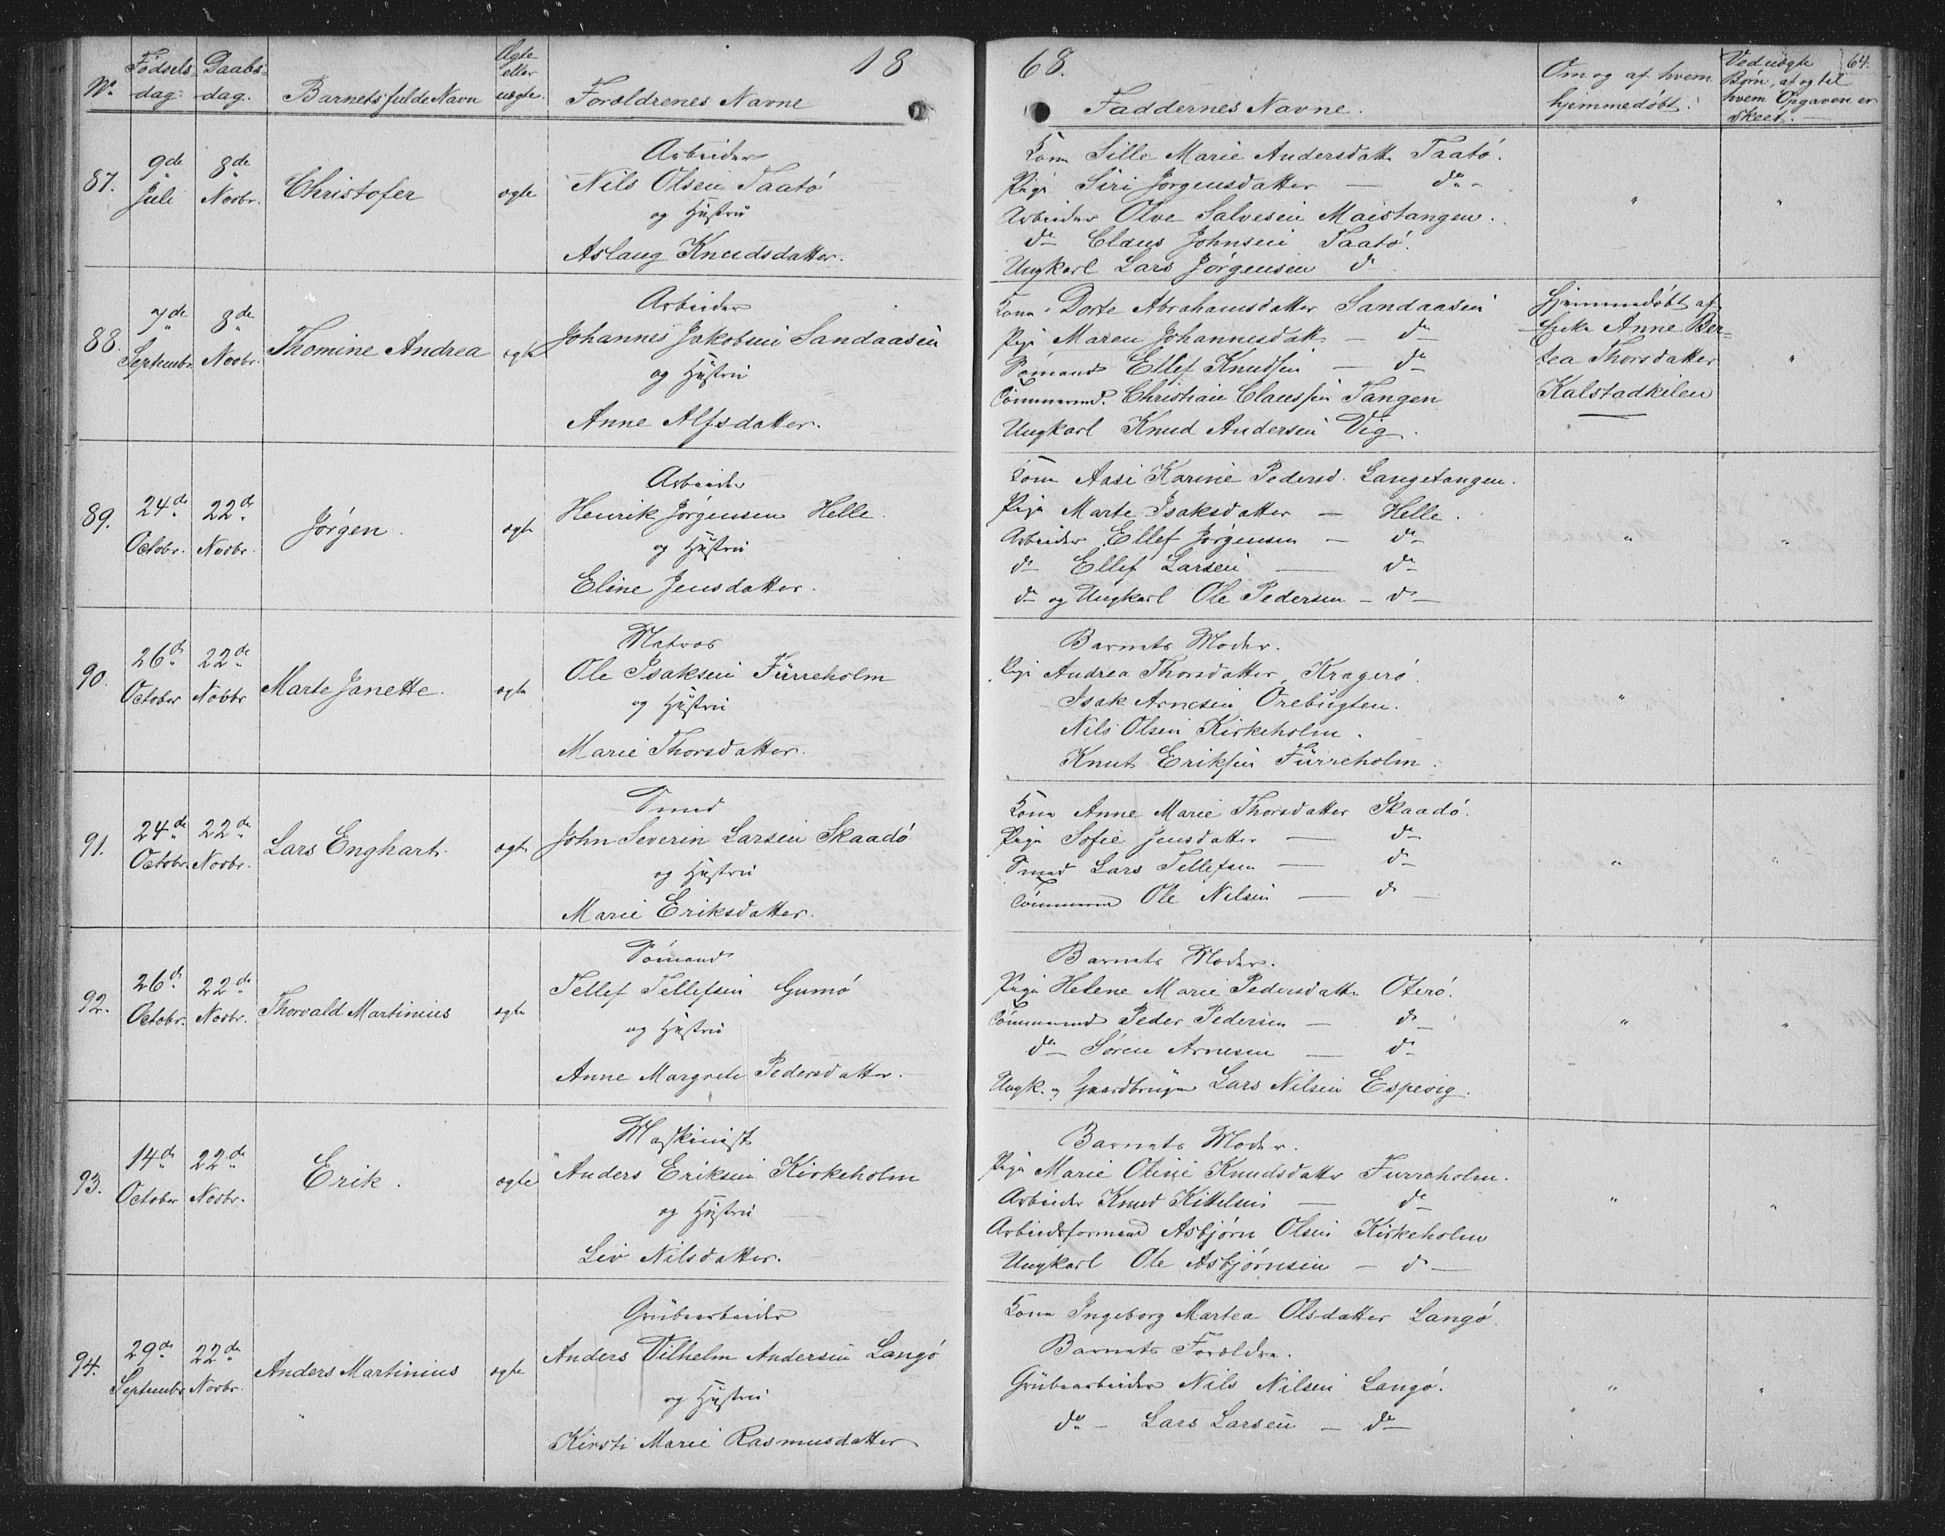 18 68. 64.
No. Fødsels-dag. Daabs-dag. Barnets fulde Navn Ægte eller uægte. Forældrenes Navne Faddernes Navne. Om og af hvem hjemmedøbt. Ved uægte Børn, at og til hvem Opgaven er skeet.
87. 9de Juli 8de Novbr. Christofer ægte
Arbeider
Nils Olsen Taatø
og Hustru
Aslaug Knudsdatter.
Kone Sille Marie Andersdatt. Taatø.
Pige Siri Jørgensdatter — do -
Arbeider Olve Salvesen Maistangen.
do Claus Johnsen Taatø.
Ungkarl Lars Jørgensen do
" "
88. 7de Septembr. 8de Novbr. Thomine Andrea ægte
Arbeider
Johannes Jakobsen Sandaasen
og Hustru
Anne Alfsdatter.
Kone Dorte Abrahamsdatter Sandaasen
Pige Maren Johannesdatt. — do
Sømand Ellef Knudsen — do
Tømmermd. Christian Claussen Tangen
Ungkarl Knud Andersen Vig.
Hjemmedøbt af
Enke Anne Ber-
tea Thorsdatter
Kalstadkilen
"
89. 24de Octobr. 22de Novbr. Jørgen. ægte
Arbeider
Henrik Jørgensen Helle.
og Hustru
Eline Jensdatter.
Kone Aase Karine Pedersd. Langetangen.
Pige Marte Isaksdatter — Helle.
Arbeider Ellef Jørgensen — do
do Ellef Larsen — do
do og Ungkarl Ole Pedersen — do
" "
90. 26de October 22de Novbr Marte Janette. ægte
Matros
Ole Isaksen Furreholm
og Hustru
Marie Thorsdatter.
Barnets Moder.
Pige Andrea Thorsdatter, Kragerø.
Isak Arnesen Orebugten.
Nils Olsen Kirkeholm.
Knut Eriksen Furreholm.
" "
91. 24de Octobr. 22de Novbr. Lars Enghart. ægte
Smed
John Severin Larsen Skaadø
og Hustru
Marie Eriksdatter.
Kone Anne Marie Thorsdatter Skaadø.
Pige Sofie Jensdatter — do
Smed Lars Tellefsen — do
Tømmermd Ole Nilsen — do
" "
92. 26de Octobr. 22de Novbr. Thorvald Martinius ægte
Sømand
Tellef Tellefsen Gumø
og Hustru
Anne Margrete Pedersdatter.
Barnets Moder.
Pige Helene Marie Pedersdatte Oterø.
Tømmermd Peder Pedersen — do
do Søren Arnesen — do
Ungk. og Gaardbruger Lars Nilsen Espevig.
" "
93. 14de October 22de Novbr. Erik. ægte
Maskinist
Anders Eriksen Kirkeholm
og Hustru
Liv Nilsdatter.
Barnets Moder.
Pige Marie Oline Knudsdatter Furreholm.
Arbeider Knud Kittelsen — do
Arbeidsformand Asbjørn Olsen Kirkeholm
Ungkarl Ole Asbjørnsen — do
" "
94. 29de Septembr 22de Novbr. Anders Martinius ægte
Grubearbeider
Anders Vilhelm Andersen Langø
og Hustru
Kirsti Marie Rasmusdatter
Kone Ingeborg Martea Olsdatter Langø.
Barnets Forældre.
Grubearbeider Nils Nilsen Langø.
do — Lars Larsen — do
" "